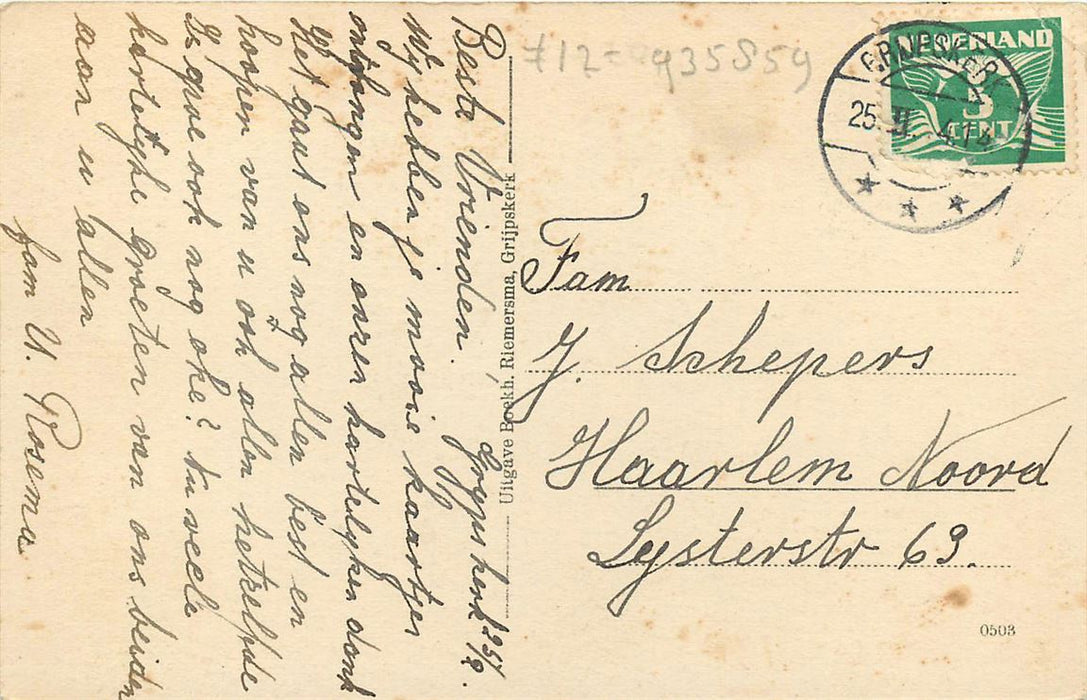 Grypskerk 25/2.
Beste Vrienden.
Wy hebben je mooie kaartjes
ontfangen en onzen hartelyken dank
Het gaat ons nog allen best en
hoopen van u ook allen hetzelfde
Is ook nog oké? nu veele
hartelyke groeten van ons beiden
aan u allen
fam U. Rosema
Uitgave Boekh. Riemersma, Grijpskerk
712- 935859
NEDERLAND
3
CENT
25.II. 41
Fam
J. Schepers
Haarlem Noord
Lysterstr 63.
0503